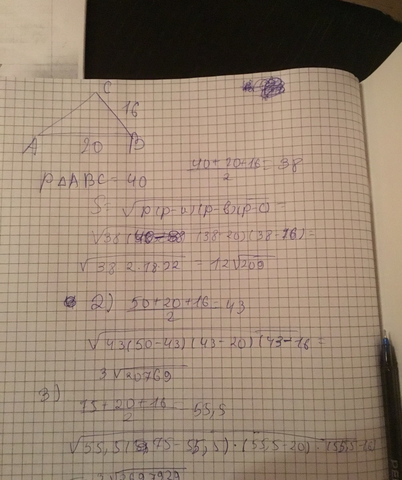 C
16
A 20 B
P△ABC = 40
40+20+16/2 = 38
S = √p(p-a)(p-b)(p-c) =
(38-20)(38-16) =
√38·2·18·22 = 12√209
2) 50+20+16/2 = 43
√43(50-43)(43-20)(43-16 =
3√20769
3)
75+20+16/2 = 55,5
√55,5(75-55,5)·(55,5-20)·